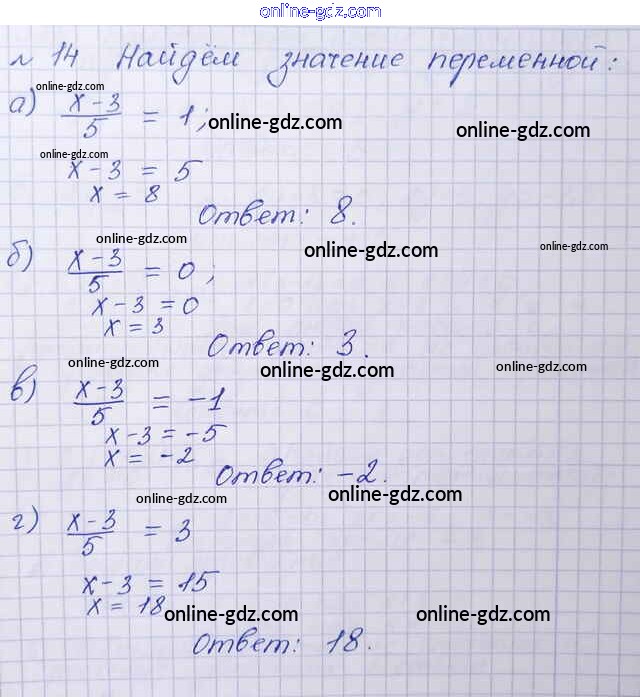 online-gdz.com
№ 14 Найдём значение переменной:
online-gdz.com
а) x-3/5 = 1;
online-gdz.com
online-gdz.com
online-gdz.com
x-3 = 5
x = 8
Ответ: 8.
online-gdz.com
online-gdz.com
online-gdz.com
б) x-3/5 = 0;
x-3 = 0
x = 3
Ответ: 3.
online-gdz.com
online-gdz.com
online-gdz.com
в) x-3/5 = -1
x-3 = -5
x = -2
Ответ: -2.
online-gdz.com
online-gdz.com
г) x-3/5 = 3
x-3 = 15
x = 18
online-gdz.com
online-gdz.com
Ответ: 18.